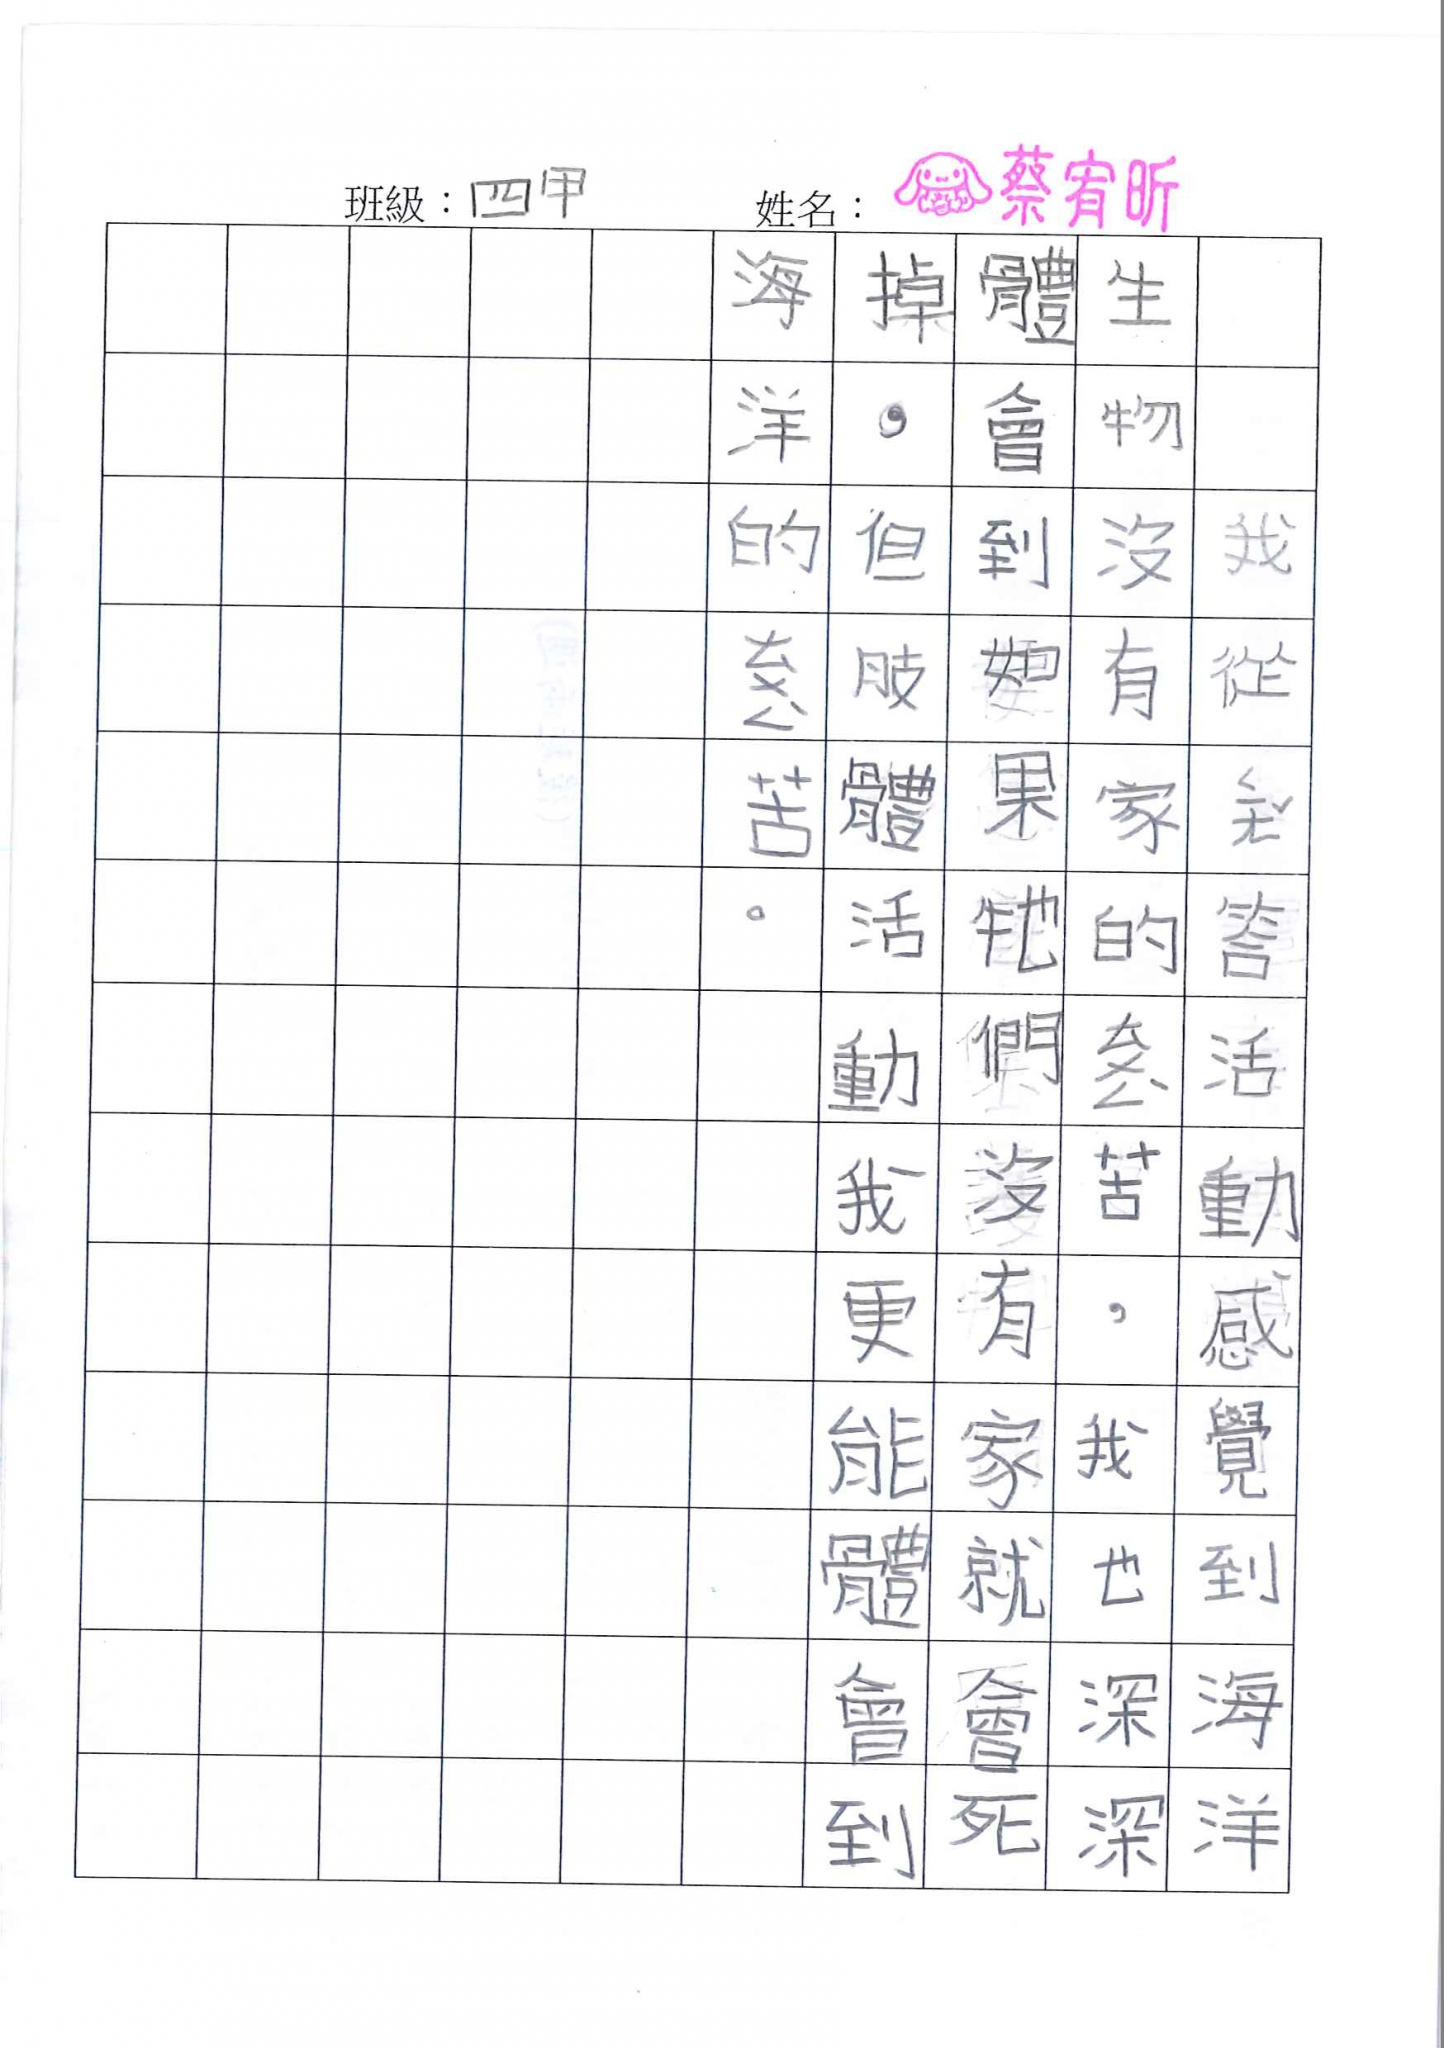 班級：四甲 姓名：蔡宥昕
我從答活動感覺到海洋
生物沒有家的苦，我也深深
體會到如果牠們沒有家就會死
掉。但肢體活動我更能體會到
海洋的苦。